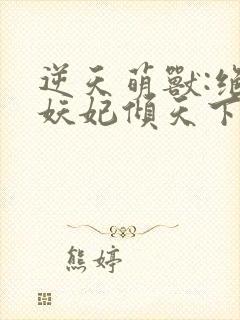 逆天萌獸:絕
妖妃傾天下
熊婷